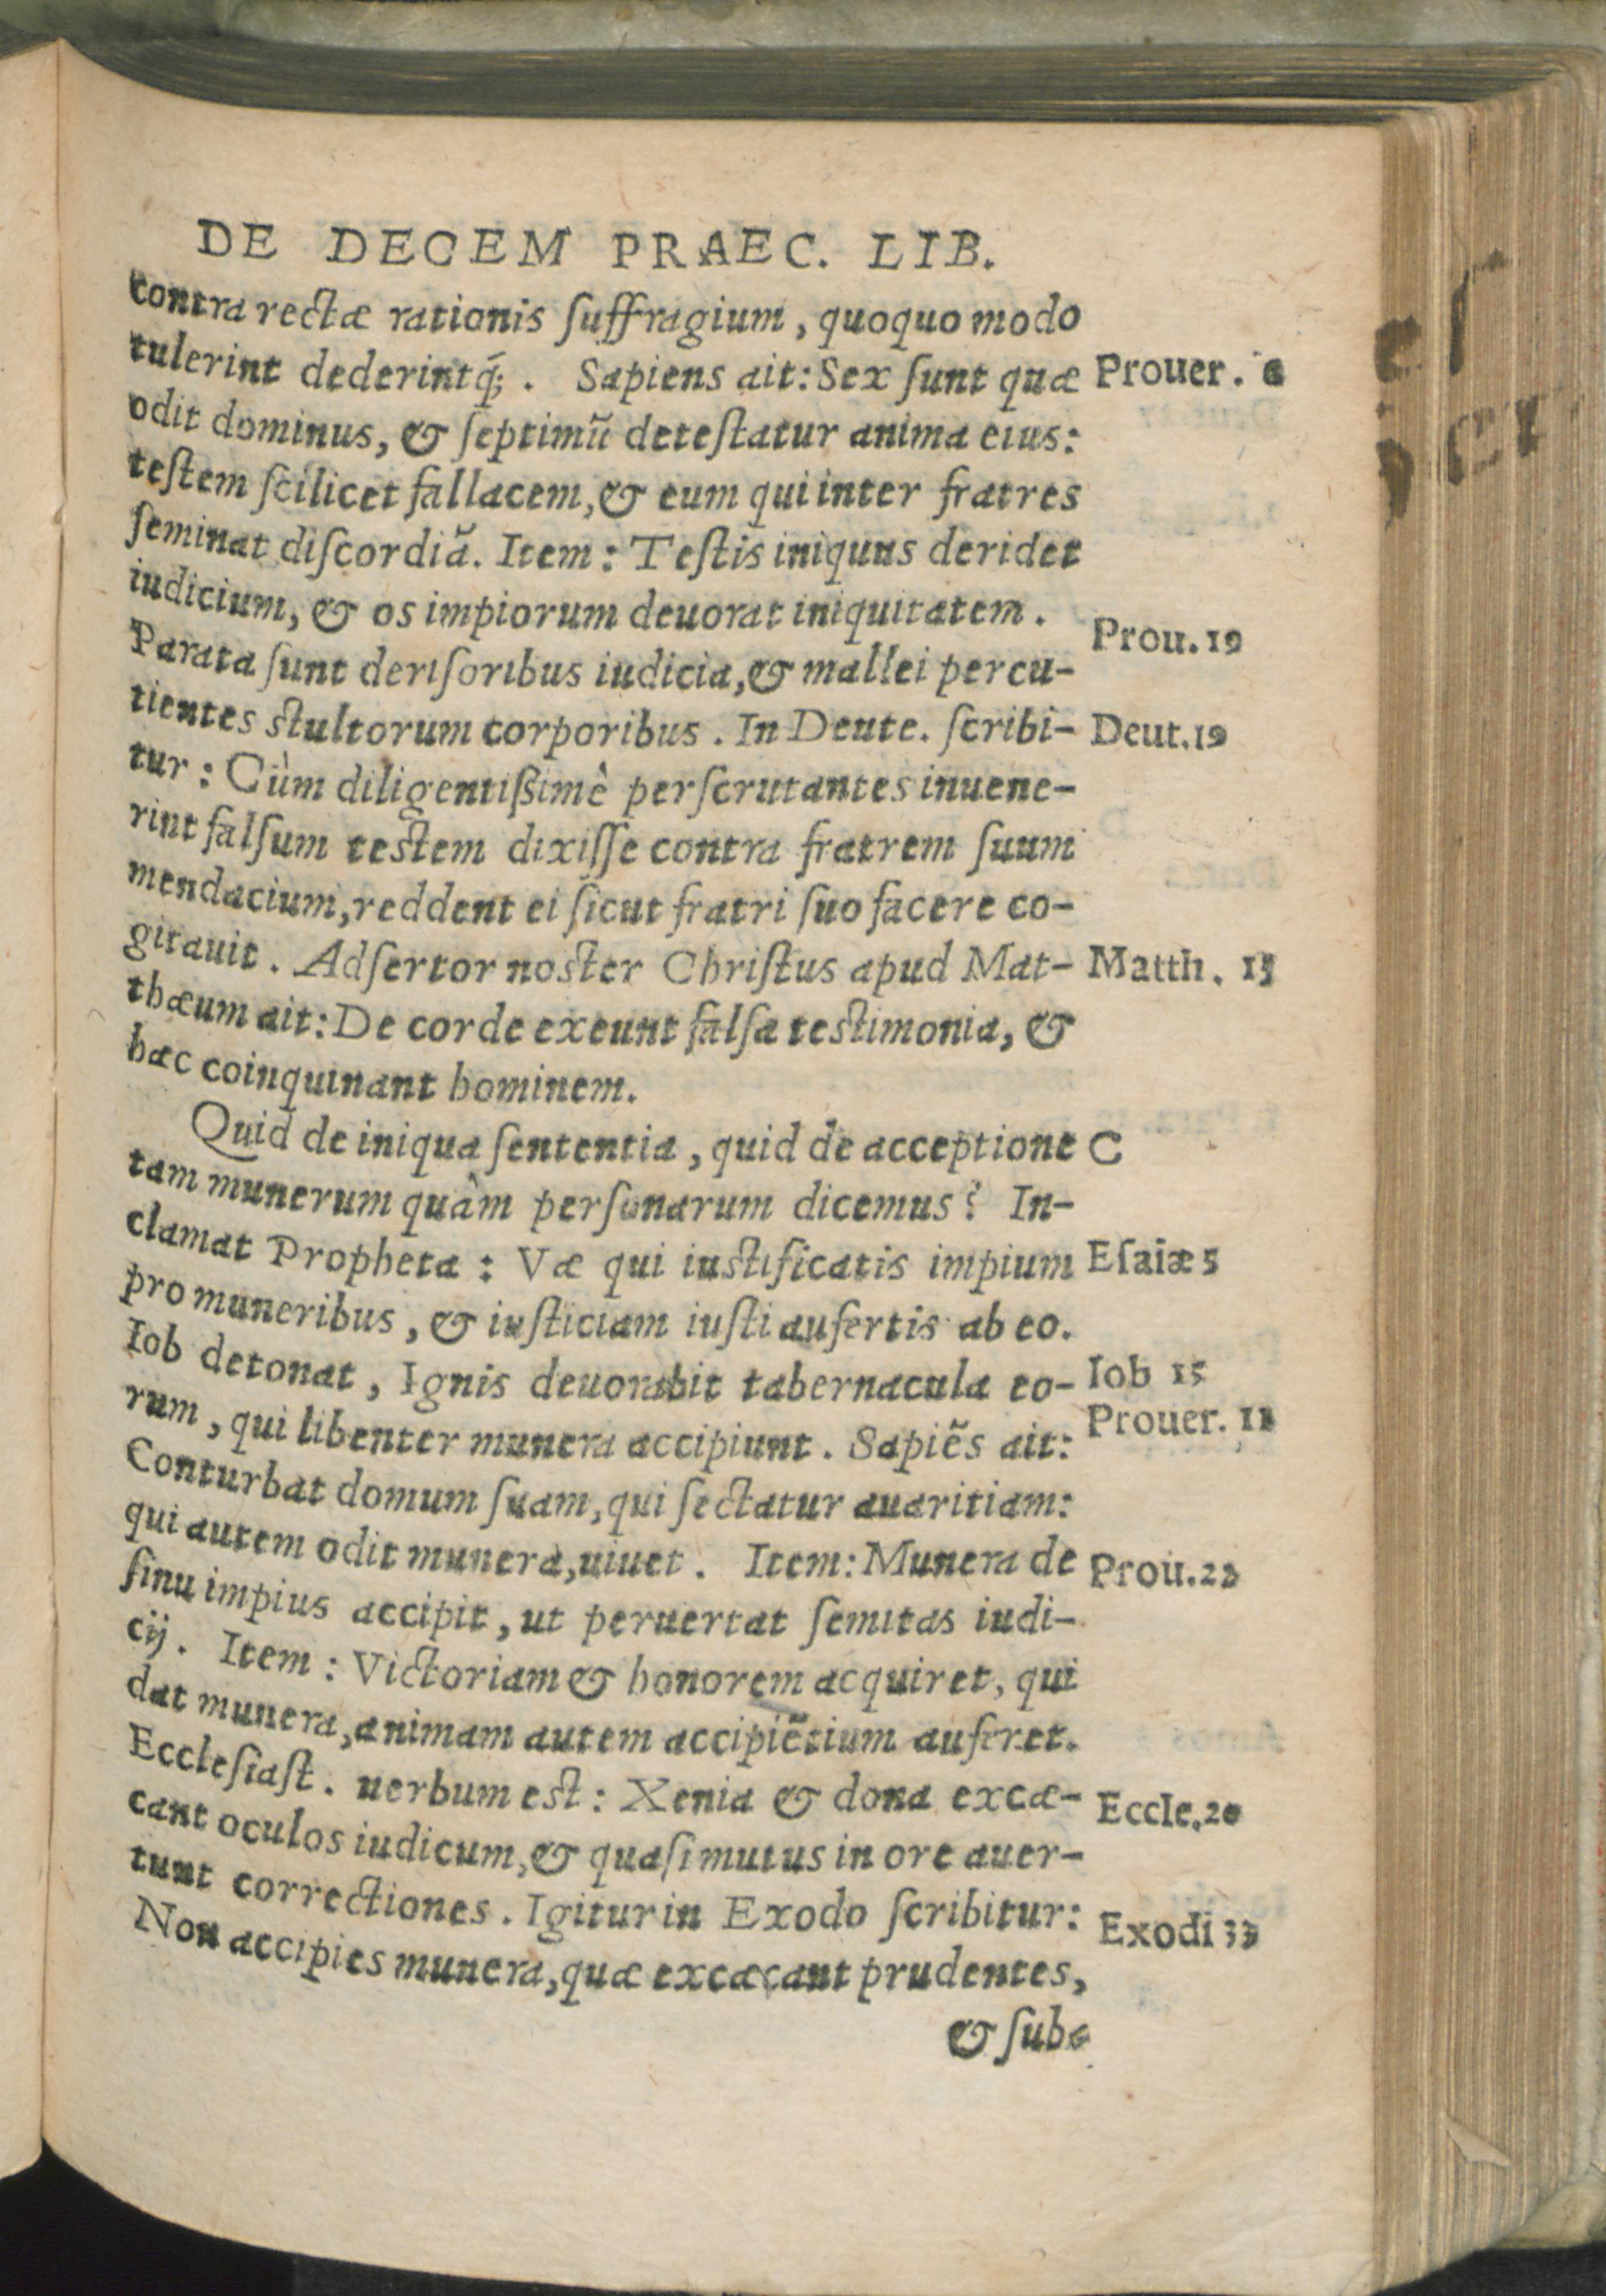 DE DECEM PRAEC. LIB.
contra rectæ rationis ſuffragium, quoquo modo
tulerint dederintq́;. Sapiens ait: Sex ſunt quæ Prouer. 6
odit dominus, & ſeptimũ deteſtatur anima eius:
teſtem ſcilicet fallacem, & eum qui inter fratres
ſeminat diſcordiã. Item: Teſtis iniquus deridet
iudicium, & os impiorum deuorat iniquitatem.
Prou. 19
Parata ſunt deriſoribus iudicia, & mallei percu-
tientes ſtultorum corporibus. In Deute. ſcribi- Deut. 19
tur: Cùm diligentißimè perſcrutantes inuene-
rint falſum teſtem dixiſſe contra fratrem ſuum
mendacium, reddent ei ſicut fratri ſuo facere co-
gitauit. Adſertor noſter Chriſtus apud Mat- Matth. 15
thæum ait: De corde exeunt falſa teſtimonia, &
hæc coinquinant hominem.
Quid de iniqua ſententia, quid de acceptione C
tam munerum quàm perſonarum dicemus? In-
clamat Propheta: Væ qui iuſtificatis impium Eſaiæ 5
pro muneribus, & iuſticiam iuſti aufertis ab eo.
Iob detonat, Ignis deuorabit tabernacula eo- Iob 15
rum, qui libenter munera accipiunt. Sapiẽs ait: Prouer.
Conturbat domum ſuam, qui ſectatur auaritiam:
qui autem odit munera, uiuet. Item: Munera de Prou.
ſinu impius accipit, ut peruertat ſemitas iudi-
cij. Item: Victoriam & honorem acquiret, qui
dat munera, animam autem accipiẽtium auferet.
Eccleſiaſt. uerbum est: Xenia & dona excæ- Eccle. 20
cant oculos iudicum, & quaſi mutus in ore auer-
tunt correctiones. Igitur in Exodo ſcribitur: Exodi
Non accipies munera, quæ excæcant prudentes,
& ſub-